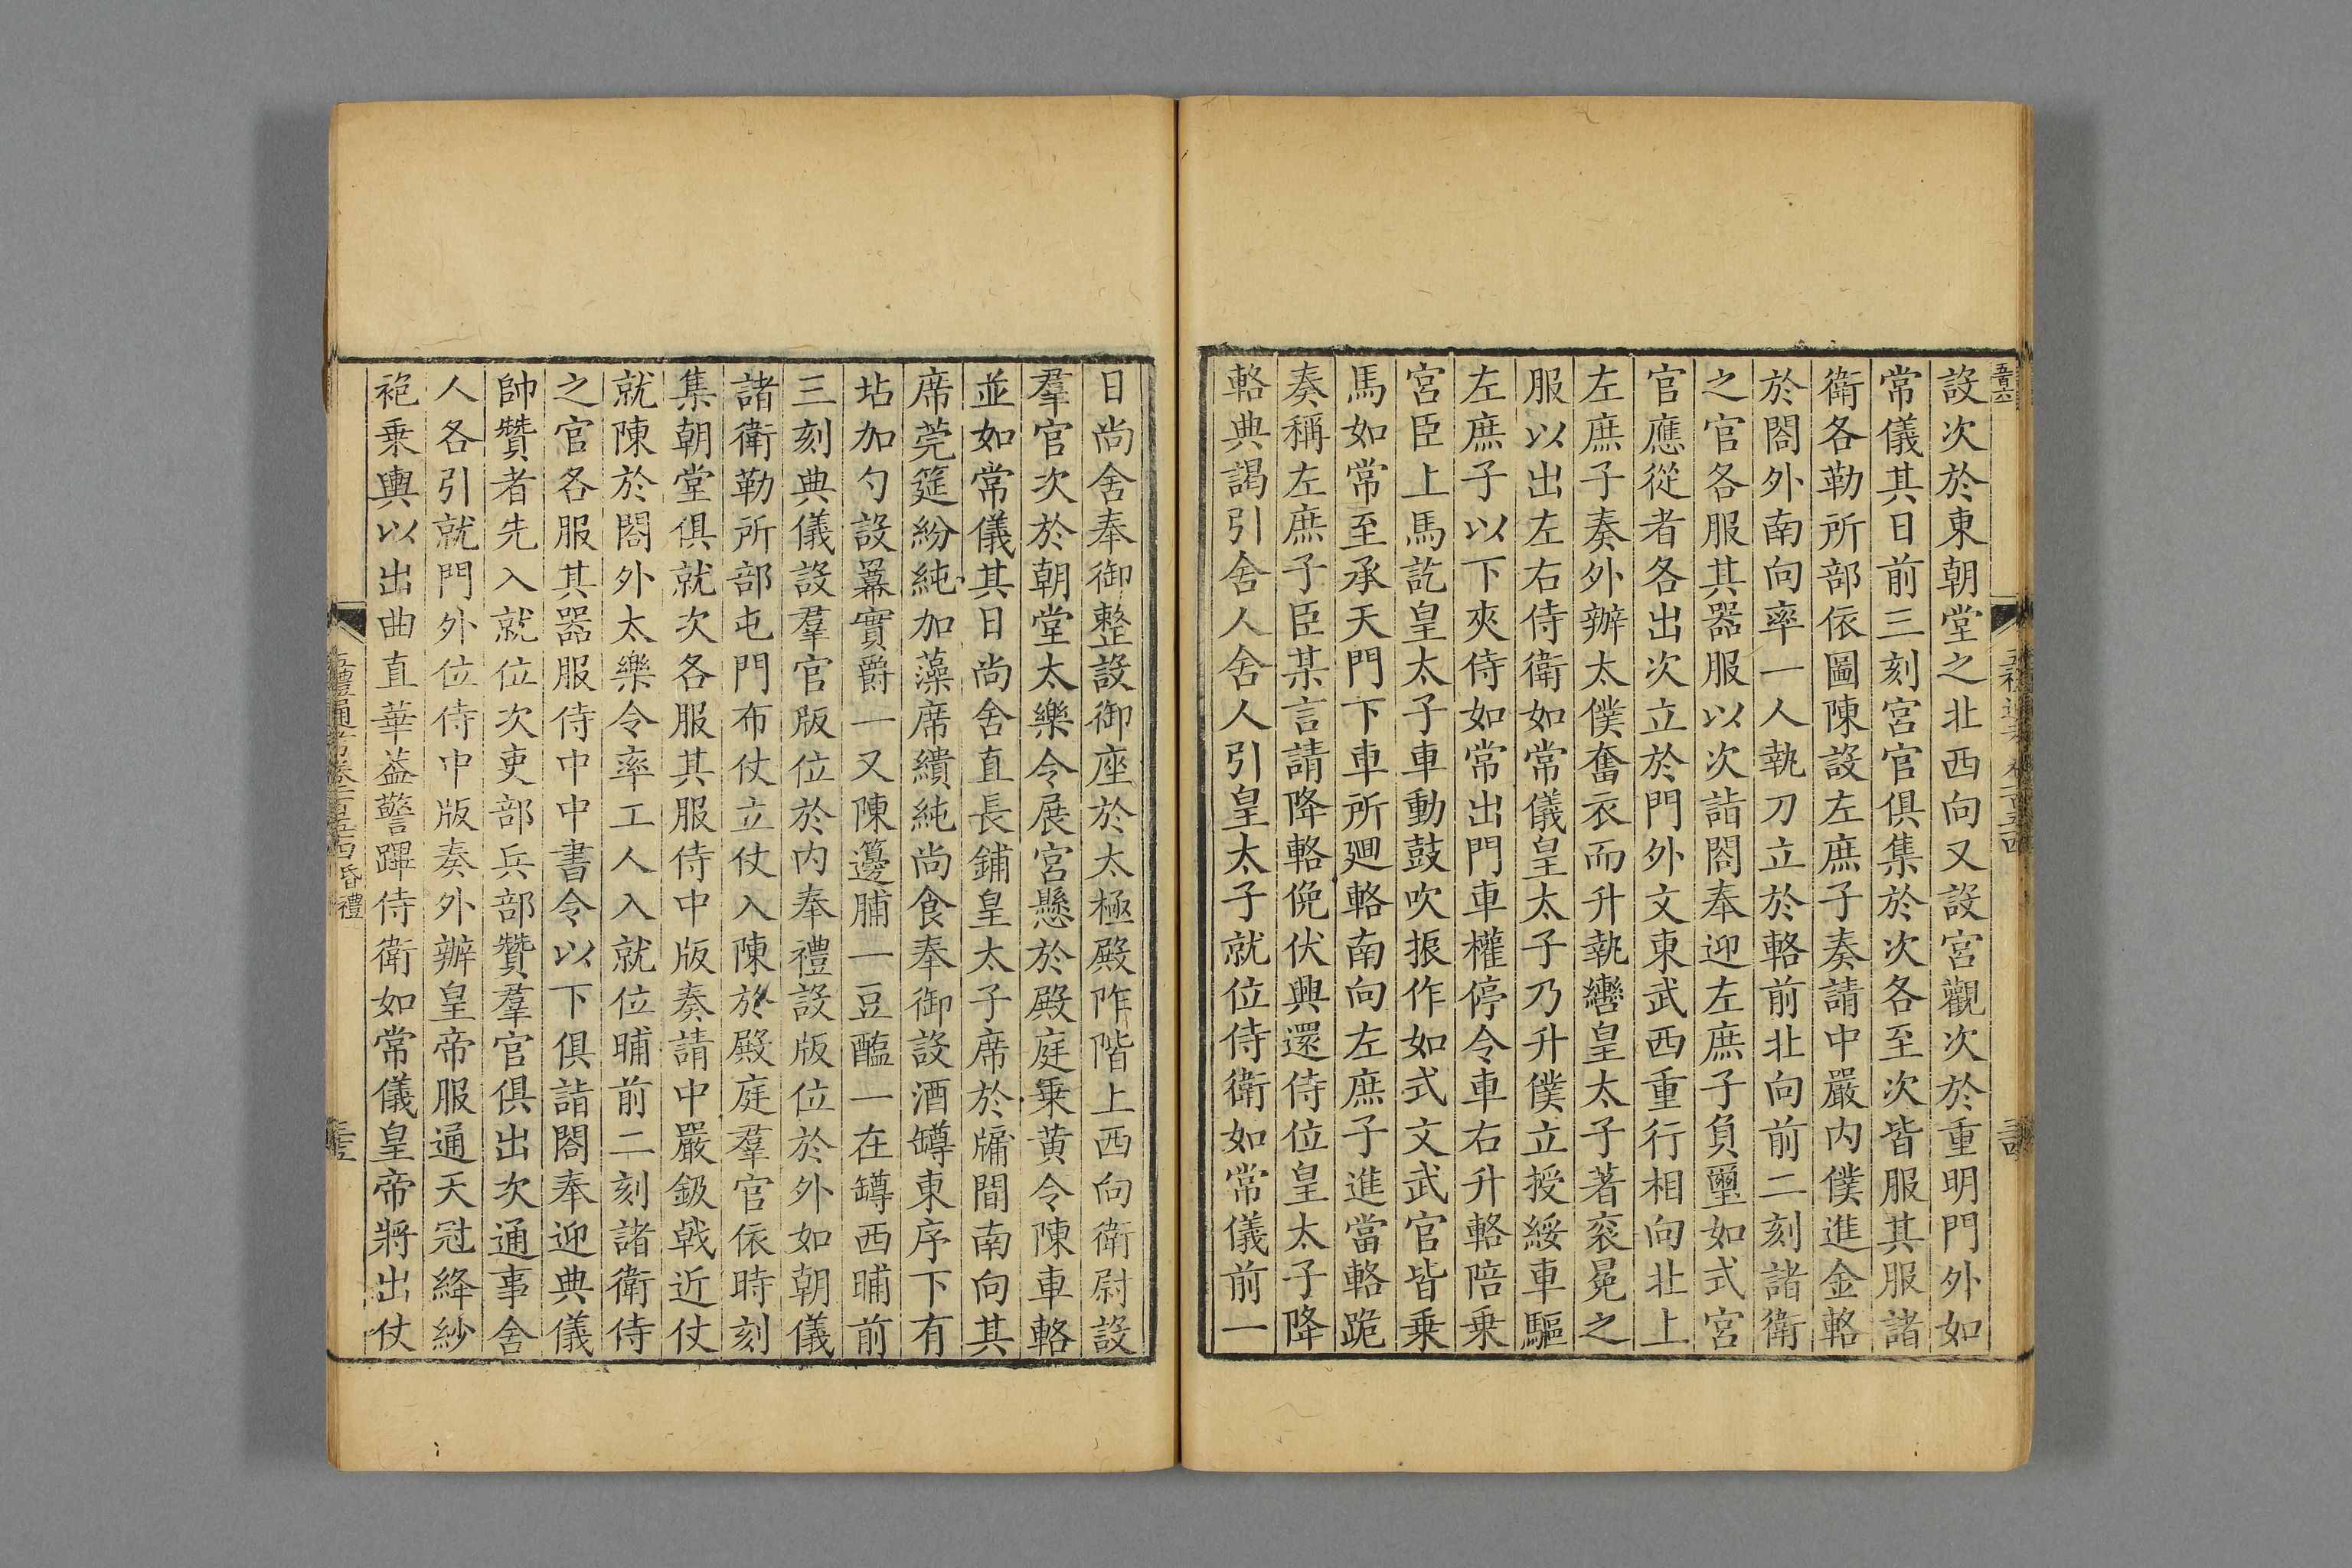 設次於東朝堂之北西向又設宮觀次於重明門外如
常儀其日前三刻宮官俱集於次各至次皆服其服諸
衛各勒所部依圖陳設左庶子奏請中嚴內僕進金輅
於閤外南向率一人執刀立於輅前北向前二刻諸衛
之官各服其器服以次詣閤奉迎左庶子負璽如式宮
官應從者各出次立於門外文東武西重行相向北上
左庶子奏外辦太僕奮衣而升執轡皇太子著衮冕之
服以出左右侍衛如常儀皇太子乃升僕立授綏車驅
左庶子以下夾侍如常出門車權停令車右升輅陪乗
宮臣上馬訖皇太子車動鼓吹振作如式文武官皆乗
馬如常至承天門下車所廻輅南向左庶子進當輅跪
奏稱左庶子臣某言請降輅俛伏興還侍位皇太子降
輅典謁引舍人舍人引皇太子就位侍衛如常儀前一
日尚舍奉御整設御座於太極殿阼階上西向衛尉設
羣官次於朝堂太樂令展宮懸於殿庭乗黃令陳車輅
並如常儀其日尚舍直長鋪皇太子席於牖間南向其
席莞筵紛純加藻席繢純尚食奉御設酒罇東序下有
坫加勺設羃實爵一又陳籩脯一豆醢一在罇西晡前
三刻典儀設羣官版位於内奉禮設版位於外如朝儀
諸衛勒所部屯門布仗立仗入陳於殿庭羣官依時刻
集朝堂俱就次各服其服侍中版奏請中嚴鈒戟近仗
就陳於閤外太樂令率工人入就位晡前二刻諸衛侍
之官各服其器服侍中中書令以下俱詣閤奉迎典儀
帥贊者先入就位次吏部兵部贊羣官俱出次通事舍
人各引就門外位侍中版奏外辦皇帝服通天冠絳紗
袍乗輿以出曲直華葢警蹕侍衛如常儀皇帝將出仗
昏禮